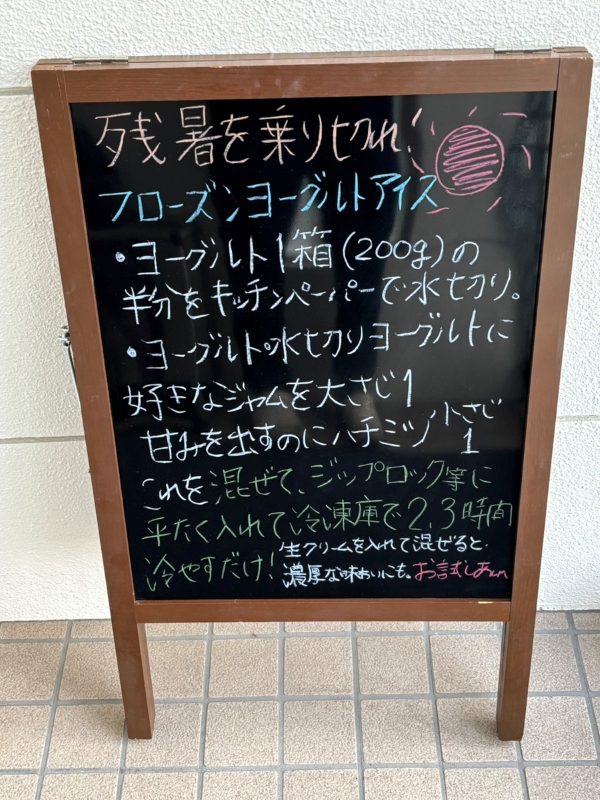 残暑を乗り切れ!
フローズンヨーグルトアイス
・ヨーグルト1箱(200g)の
半分をキッチンペーパーで水切り。
・ヨーグルト。水切りヨーグルトに
好きなジャムを大さじ1
甘みを出すのにハチミツ小さじ1
これを混ぜて、ジップロック等に
平たく入れて冷凍庫で2,3時間
冷やすだけ!
生クリームを入れて混ぜると
濃厚な味わいにも。お試しあれ